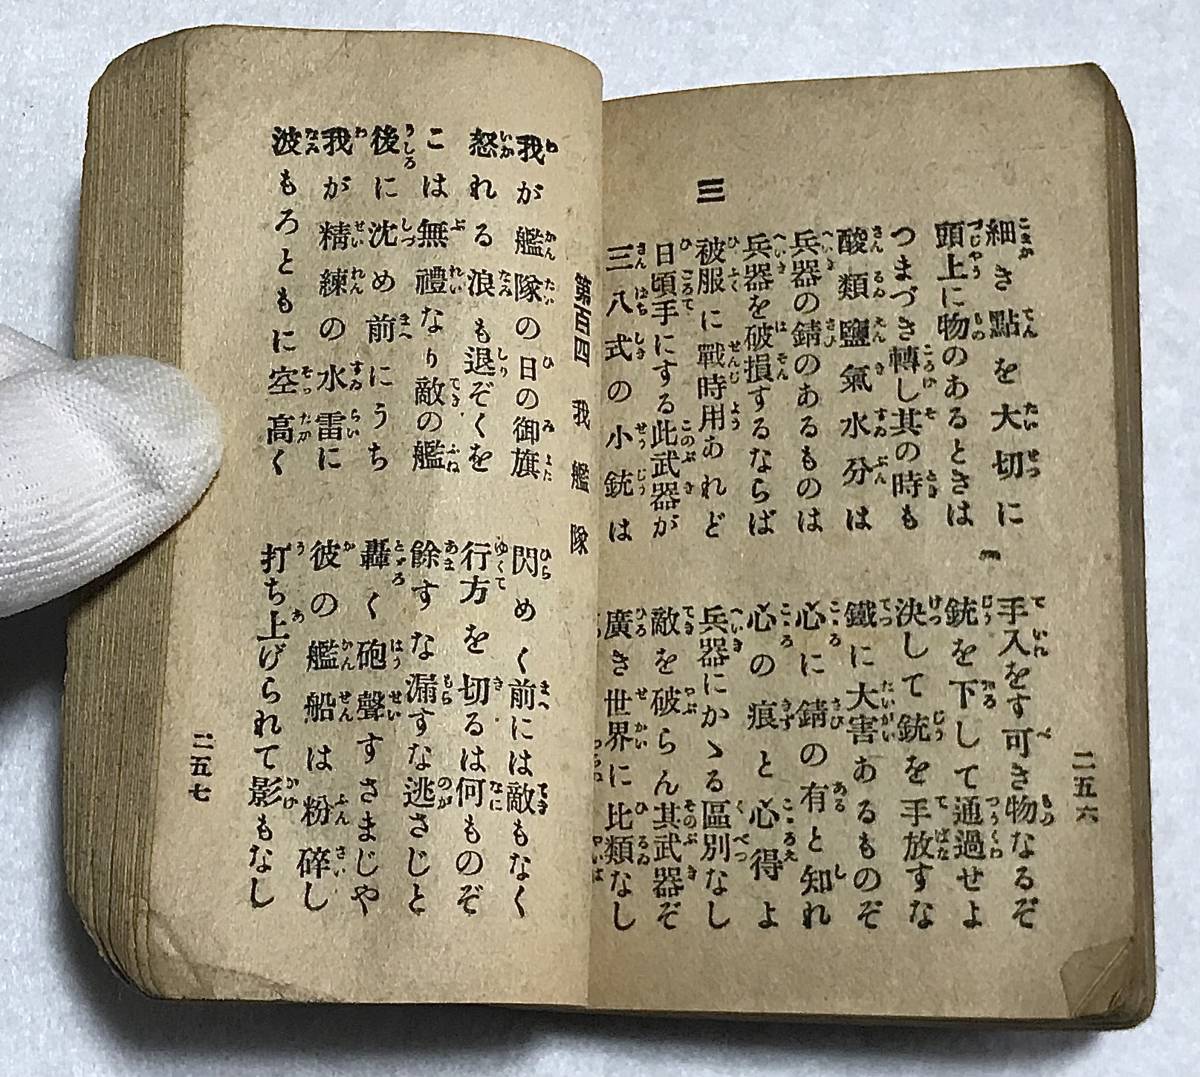 二五六
細き點を大切に　手入をす可き物なるぞ
頭上に物のあるときは　銃を下して通過せよ
つまづき轉し其の時も　決して銃を手放すな
酸類鹽氣水分は　鐵に大害あるものぞ
兵器の錆のあるものは　心に錆の有と知れ
兵器を破損するならば　心の痕と心得よ
三　被服に戰時用あれど　兵器にかゝる區別なし
日頃手にする此武器が　敵を破らん其武器ぞ
三八式の小銃は　廣き世界に比類なし
第百四　我艦隊
我が艦隊の日の御旗　閃めく前には敵もなく
怒れる浪も退ぞくを　行方を切るは何ものぞ
こは無禮なり敵の艦　餘すな漏すな逃さじと
後に沈め前にうち　轟く砲聲すさまじや
我が精練の水雷に　彼の艦船は粉碎し
波もろともに空高く　打ち上げられて影もなし
二五七